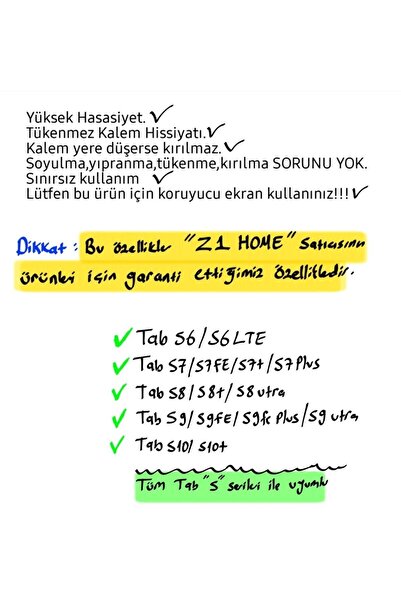 Yüksek Hasasiyet.✓
Tükenmez Kalem Hissiyatı.✓
Kalem yere düşerse kırılmaz.✓
Soyulma,yıpranma,tükenme,kırılma SORUNU YOK.
Sınırsız kullanım ✓
Lütfen bu ürün için koruyucu ekran kullanınız!!!✓
Dikkat: Bu özellikle "Z1 HOME" Satıcısının
ürünleri için garanti ettiğimiz özellikledir.
✓ Tab S6/S6 LTE
✓ Tab S7/S7FE/S7+/S7 Plus
✓ Tab S8/S8+/S8 utra
✓ Tab S9/S9FE/S9fe Plus/S9 utra
✓ Tab S10/S10+
Tüm Tab "S" serileri ile uyumlu